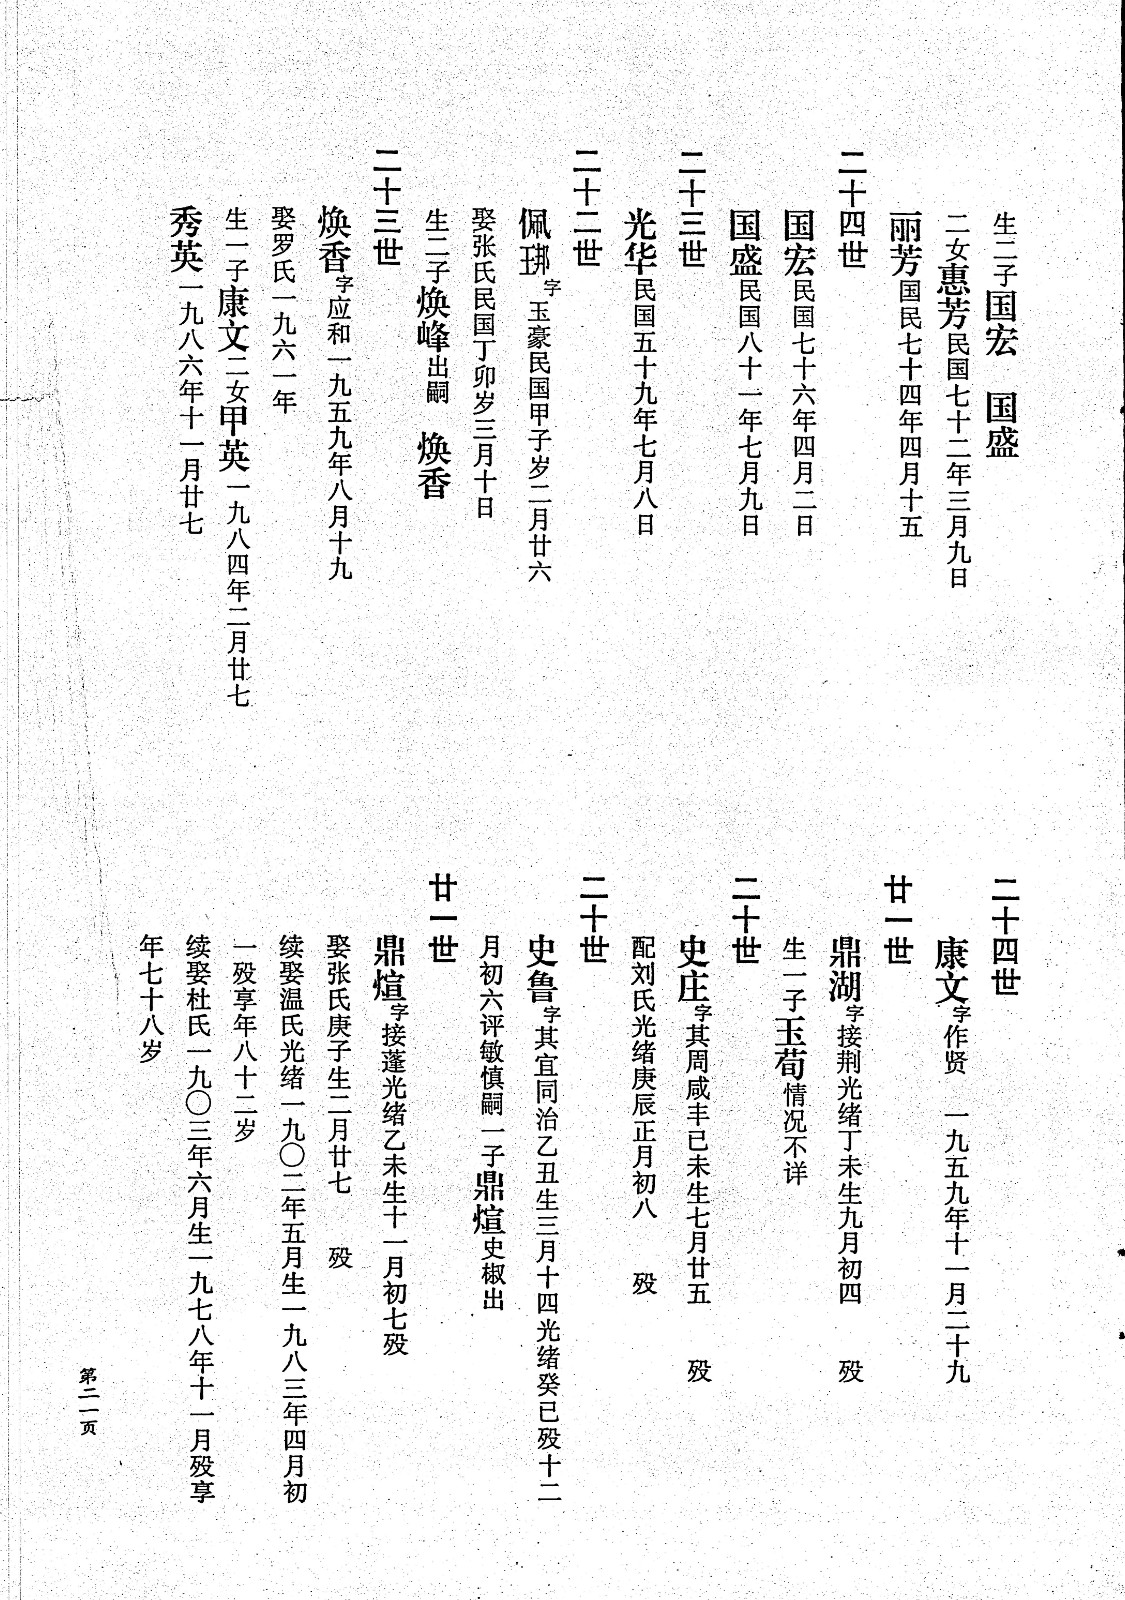 生二子国宏　国盛
二女惠芳民国七十二年三月九日
丽芳国民七十四年四月十五
二十四世
国宏民国七十六年四月二日
国盛民国八十一年七月九日
二十三世
光华民国五十九年七月八日
二十二世
佩琊字玉豪民国甲子岁二月廿六
娶张氏民国丁卯岁三月十日
生二子焕峰出嗣　焕香
二十三世
焕香字应和一九五九年八月十九
娶罗氏一九六一年
生一子康文二女甲英一九八四年二月廿七
秀英一九八六年十一月廿七
二十四世
康文字作贤　一九五九年十一月二十九
廿一世
鼎湖字接荆光绪丁未生九月初四　殁
生一子玉荀情况不详
二十世
史庄字其周咸丰已未生七月廿五　殁
配刘氏光绪庚辰正月初八　殁
二十世
史鲁字其宜同治乙丑生三月十四光绪癸已殁十二
月初六评敏慎嗣一子鼎煊史椒出
廿一世
鼎煊字接蓬光绪乙未生十一月初七殁
娶张氏庚子生二月廿七　殁
续娶温氏光绪一九〇二年五月生一九八三年四月初
一殁享年八十二岁
续娶杜氏一九〇三年六月生一九七八年十一月殁享
年七十八岁
第二一页